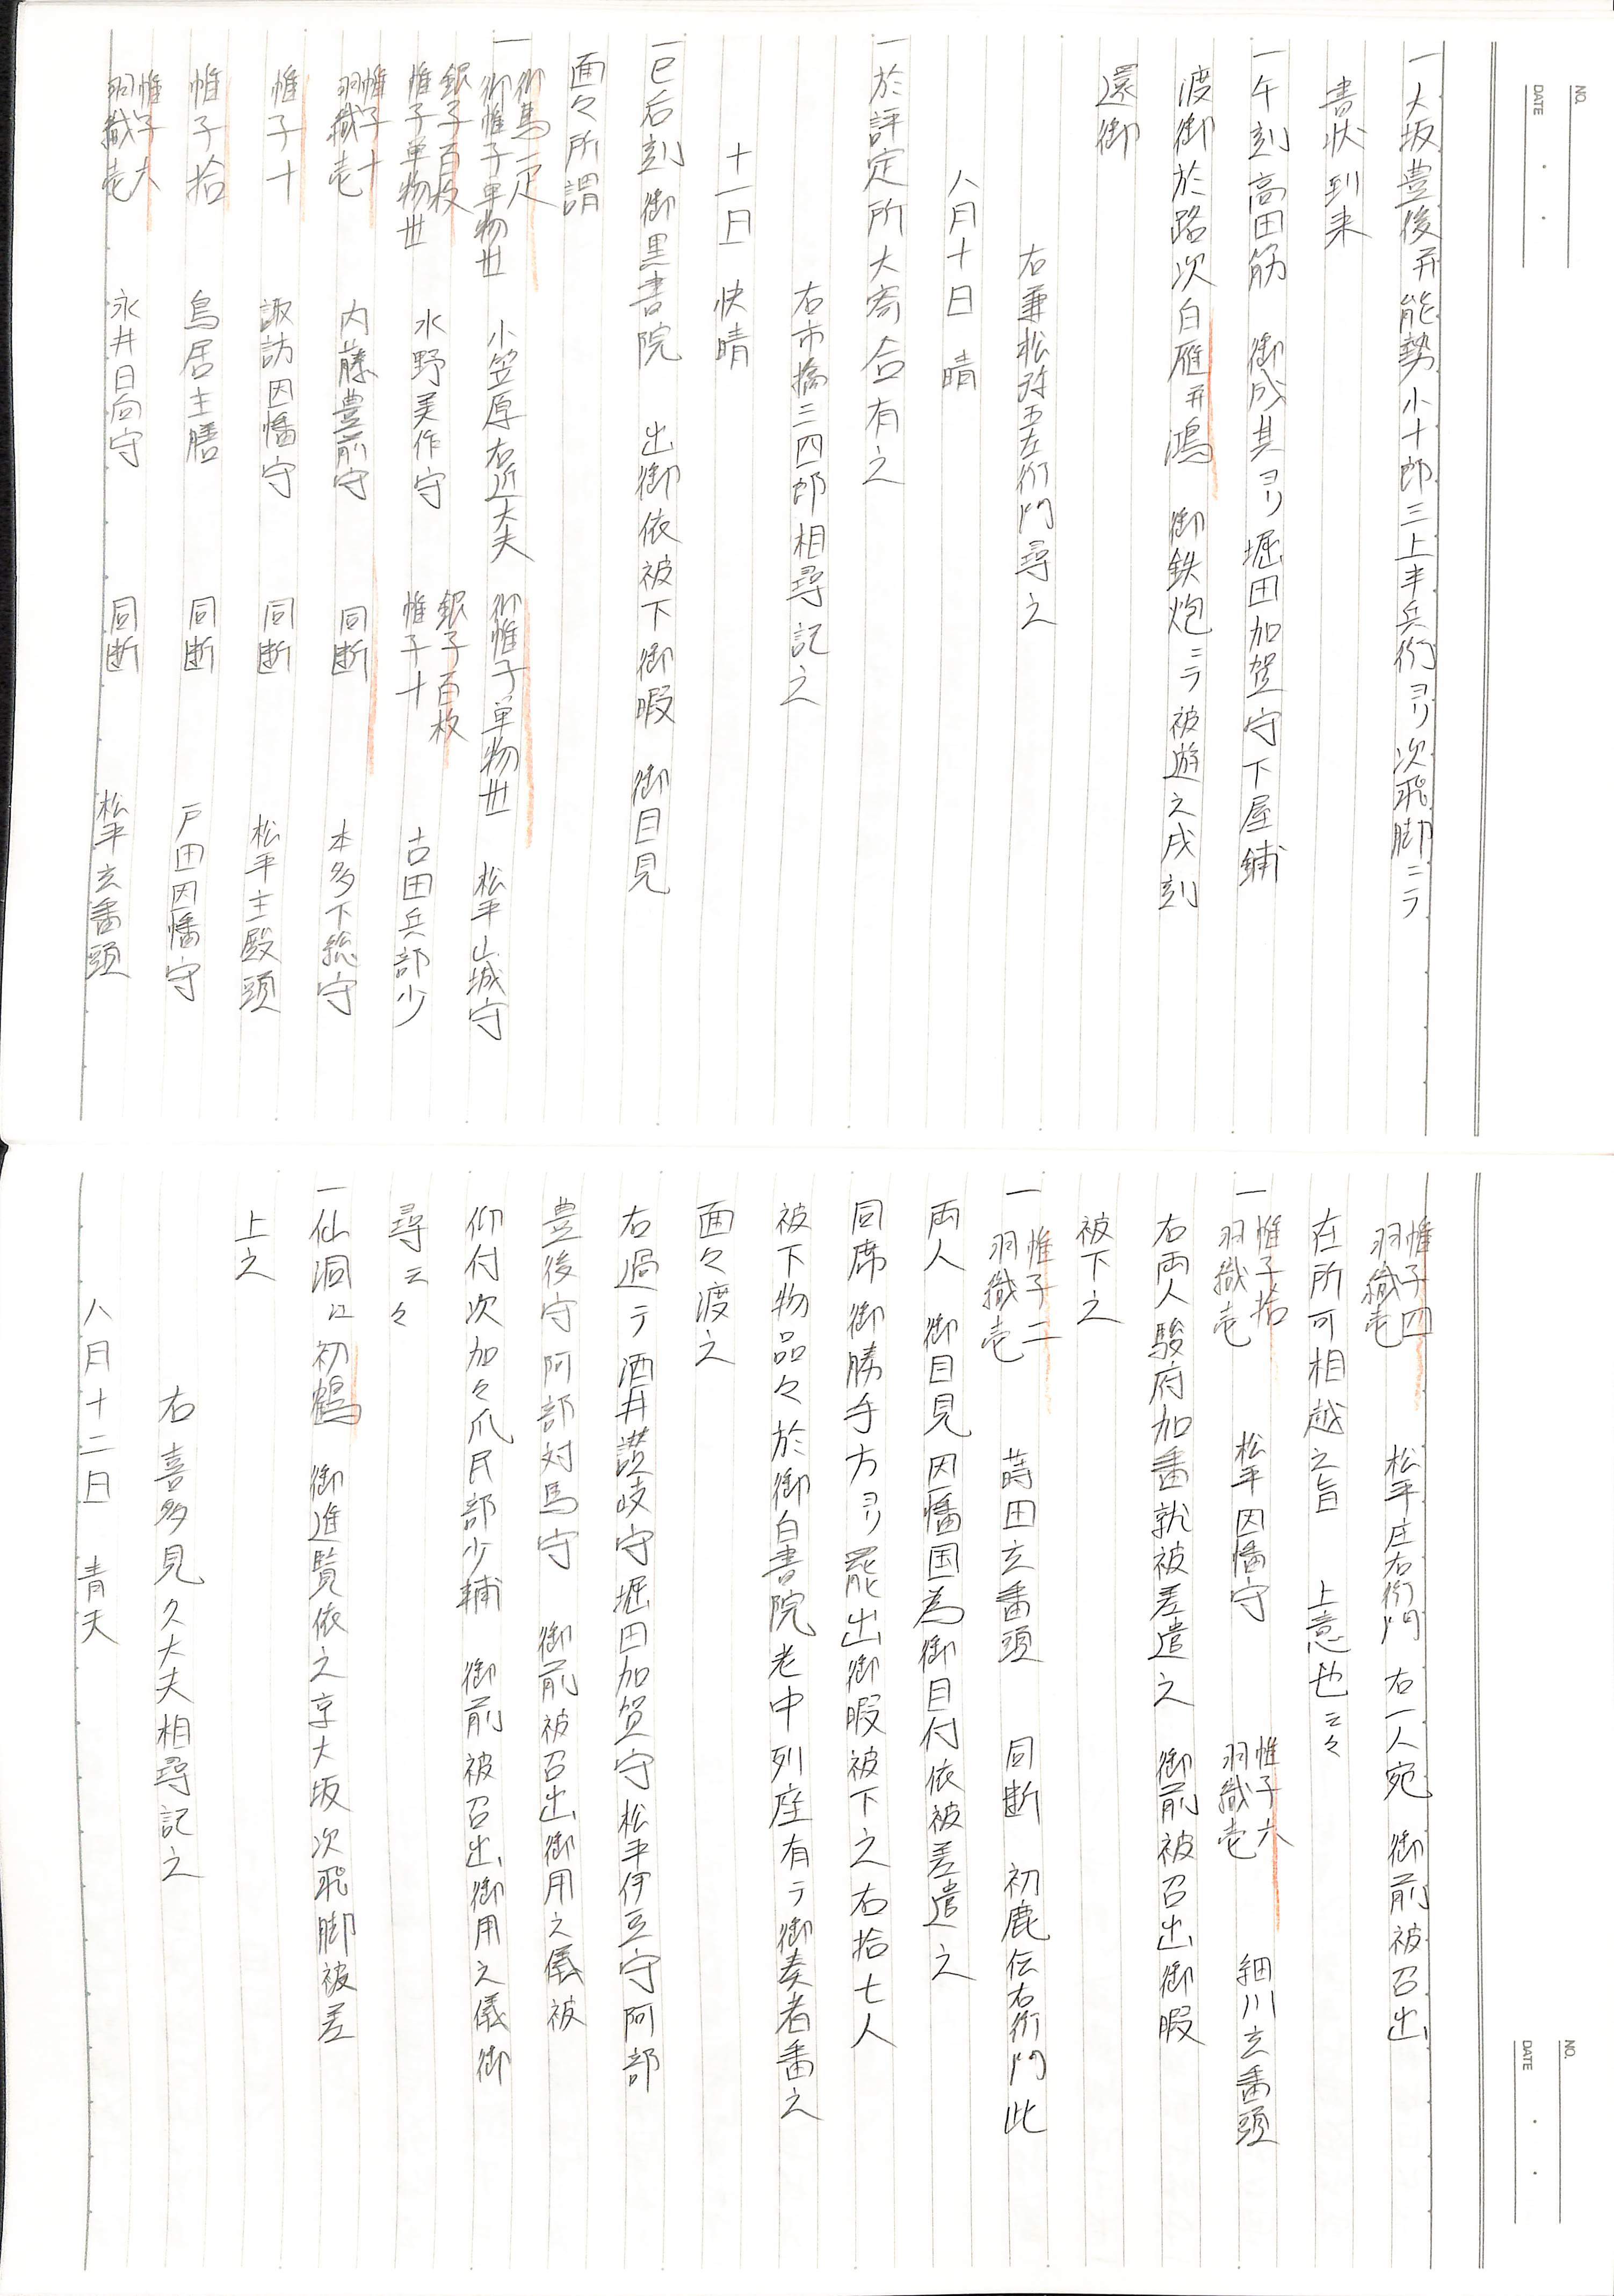 NO.
DATE
一大坂豊後并能勢小十郎三上半兵衛ヨリ次飛脚ニテ
書状到来
一午刻高田筋　御成其ヨリ堀田加賀守下屋鋪
渡御於路次白雁并鴻　御鉄炮ニテ被遊之戌刻
還御
右兼松弥五左衛門尋之
八月十日　晴
一於評定所大寄合有之
右市橋三四郎相尋記之
十一日　快晴
一巳后刻　御黒書院　出御依被下御暇　御目見
面々所謂
一御馬一疋　御帷子単物廿　小笠原右近大夫　御帷子単物廿　松平山城守
銀子百枚　帷子単物廿　水野美作守　銀子百枚　帷子十　古田兵部少
帷子十　羽織壱　内藤豊前守　同断　本多下総守
帷子十　諏訪因幡守　同断　松平主殿頭
帷子拾　鳥居主膳　同断　戸田因幡守
帷子六　羽織壱　永井日向守　同断　松平玄番頭
NO.
DATE
帷子四　羽織壱　松平庄右衛門　右一人宛　御前被召出
在所可相越之旨　上意也云々
一帷子拾　羽織壱　松平因幡守　帷子六　羽織壱　細川玄番頭
右両人駿府加番就被差遣之　御前被召出御暇
被下之
一帷子二　羽織壱　蒔田玄番頭　同断　初鹿伝右衛門此
両人　御目見因幡国為御目付依被差遣之
同席御勝手方ヨリ罷出御暇被下之右拾七人
被下物品々於御白書院老中列座有テ御奏者番之
面々渡之
右過テ酒井讃岐守堀田加賀守松平伊豆守阿部
豊後守阿部対馬守　御前被召出御用之儀被
仰付次加々爪民部少輔　御前被召出御用之儀御
尋云々
一仙洞江初鶴　御進覧依之京大坂次飛脚被差
上之
右喜多見久大夫相尋記之
八月十二日　青天